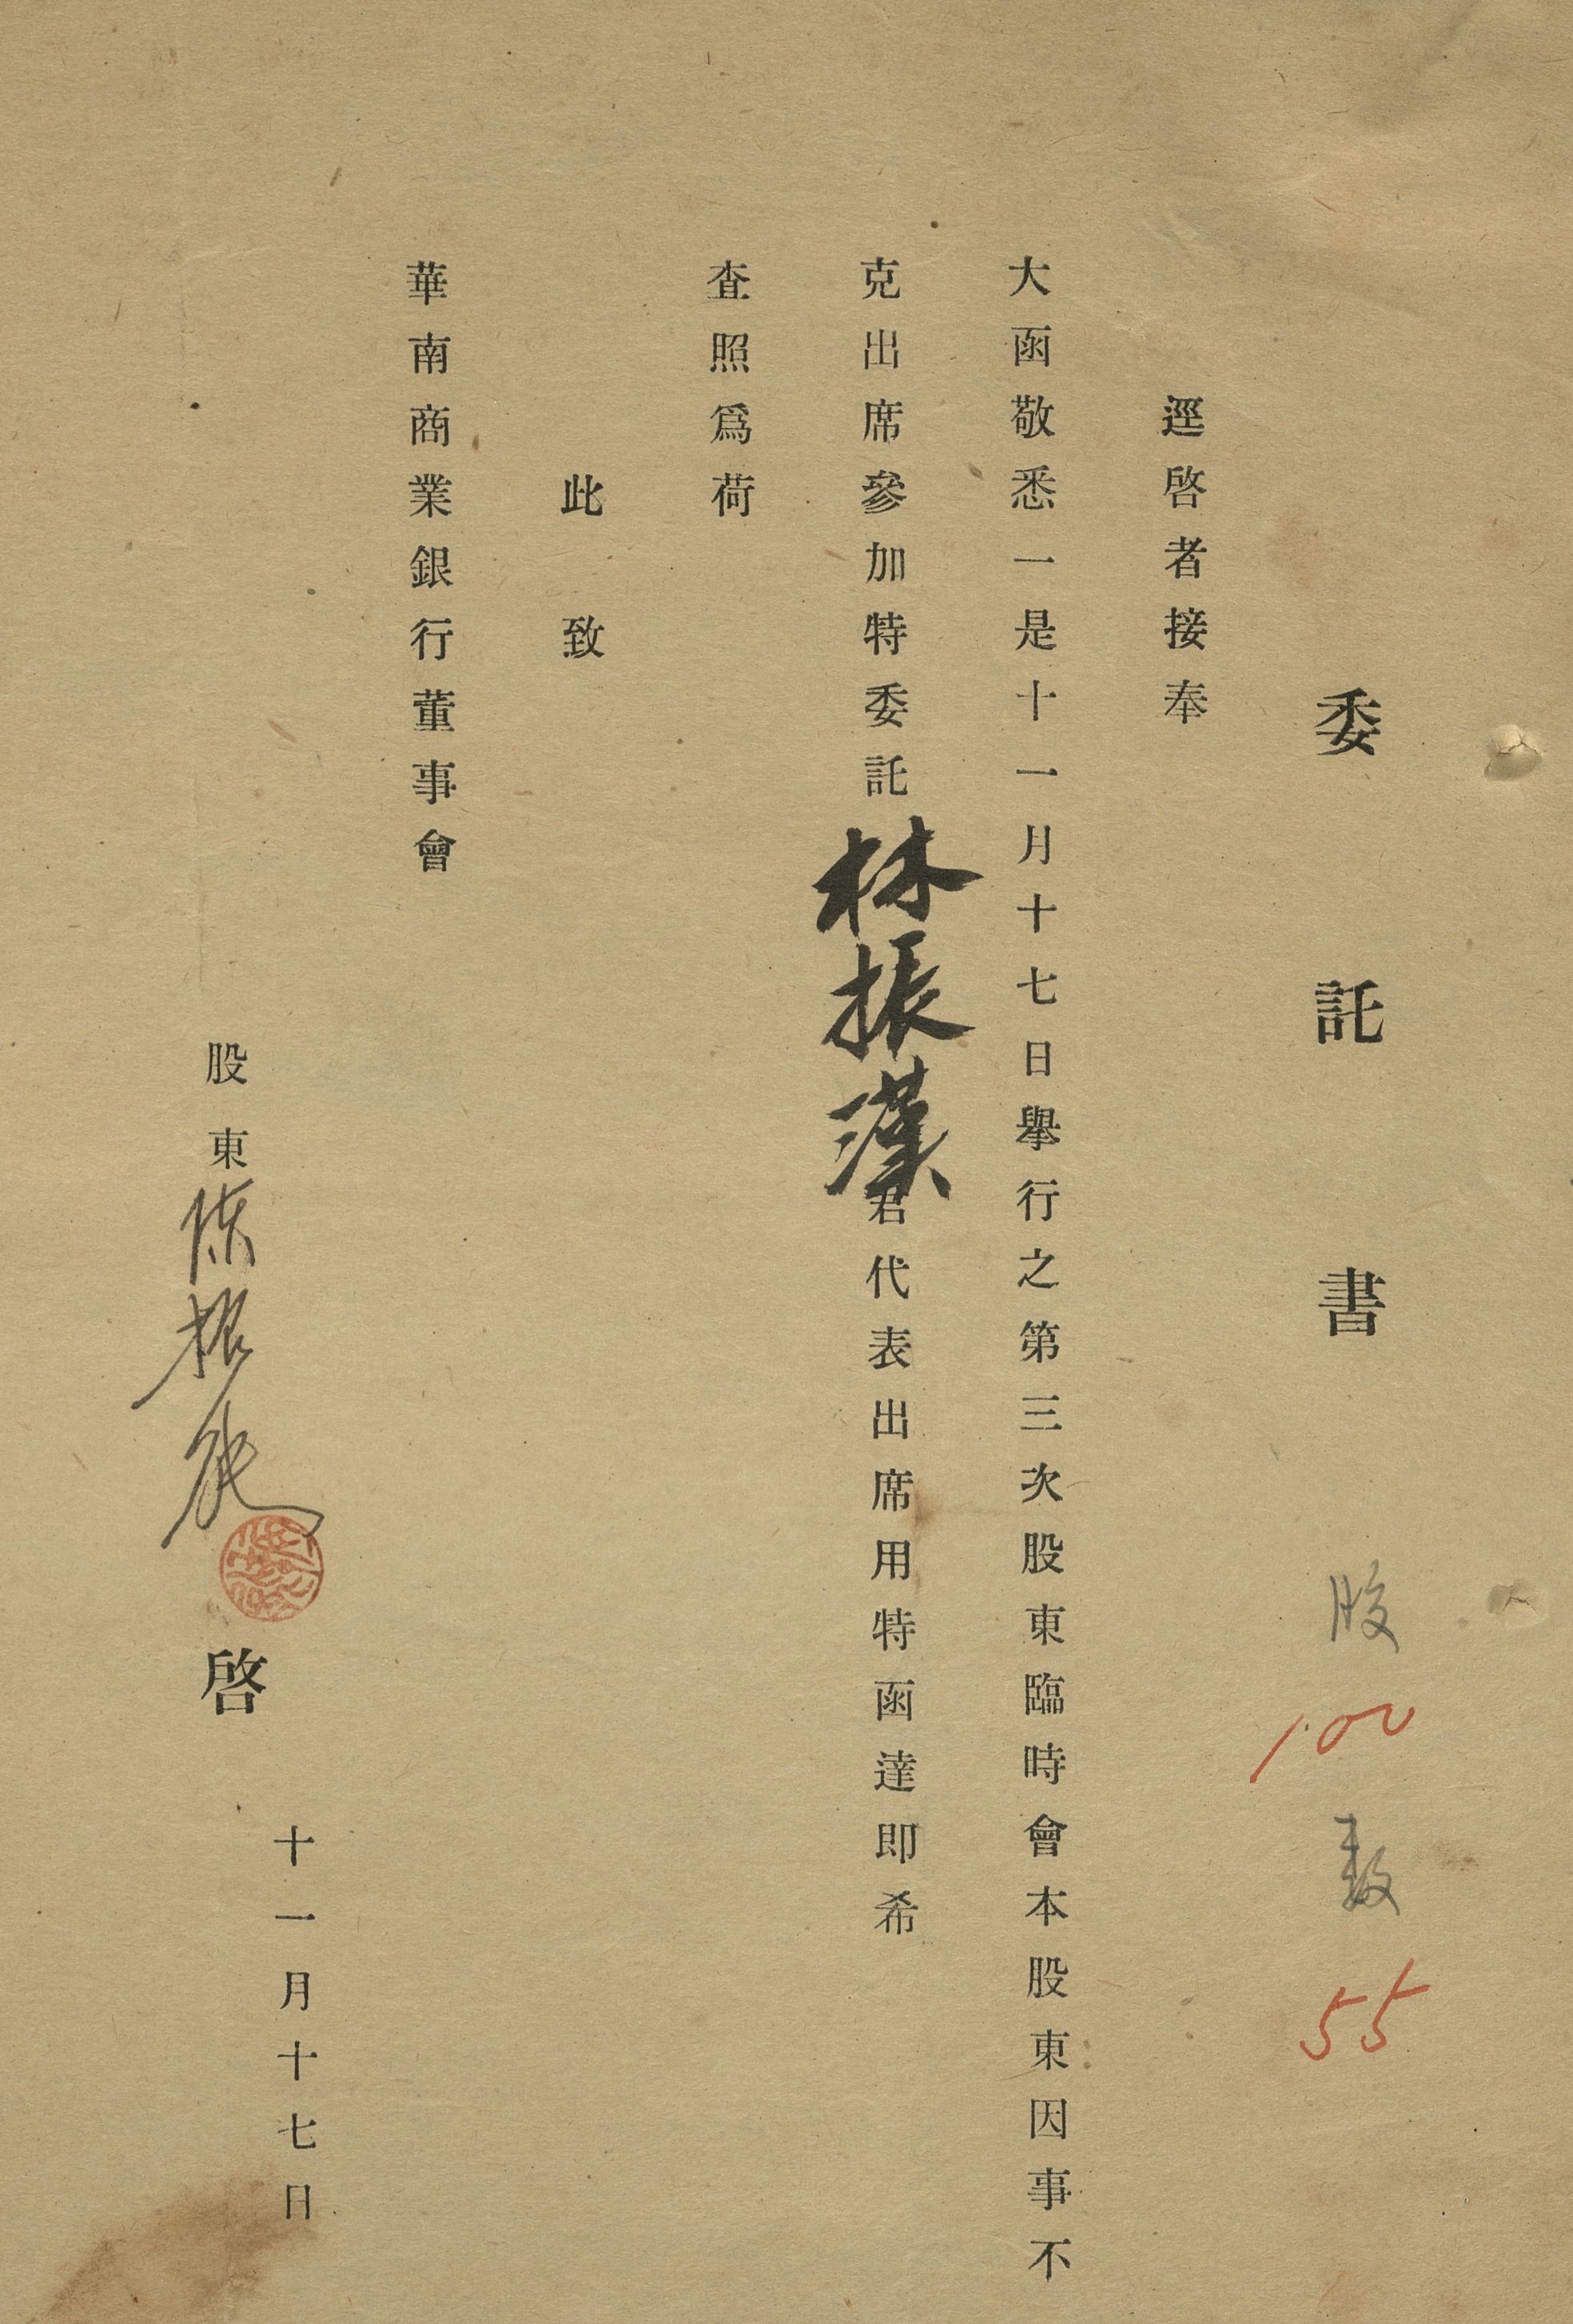 委託書
股 100 数 55
逕啓者接奉
大函敬悉一是十一月十七日舉行之第三次股東臨時會本股東因事不
克出席參加特委託林振漢君代表出席用特函達即希
査照爲荷
此致
華南商業銀行董事會
股東陳振能啓
十一月十七日